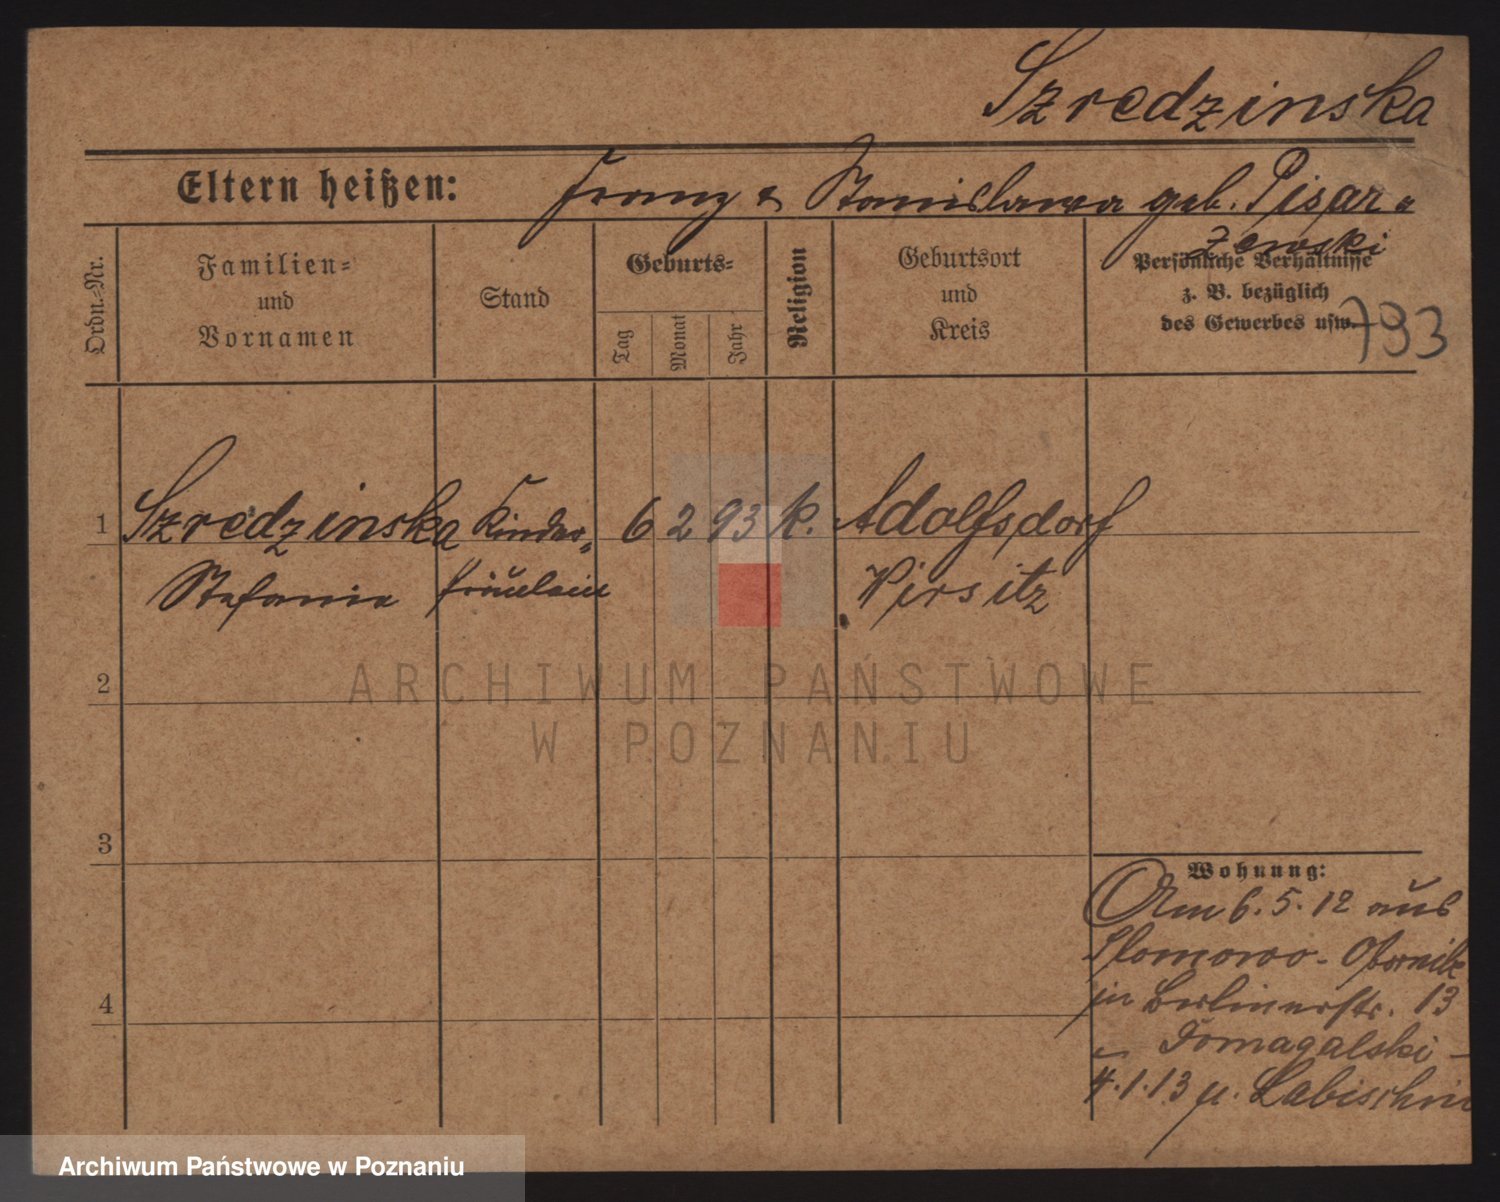 Szredzinska
Eltern heißen: Franz & Stanislawa geb. Pisar-
zewski
Ordn.-Nr.
Familien-
und
Vornamen
Stand
Geburts-
Tag
Monat
Jahr
Religion
Geburtsort
und
Kreis
Persönliche Verhältnisse
z. B. bezüglich
des Gewerbes usw.
793
1 Szredzinska Kinder- 6 2 93 k. Adolfsdorf
Stefanie fräulein Wirsitz
2
ARCHIWUM PAŃSTWOWE
W POZNANIU
3
Wohnung:
Am 6.5.12 aus
Slomowo - Obornik
in Berlinerstr. 13
Domagalski -
4
4.1.13 n. Labischin
Archiwum Państwowe w Poznaniu